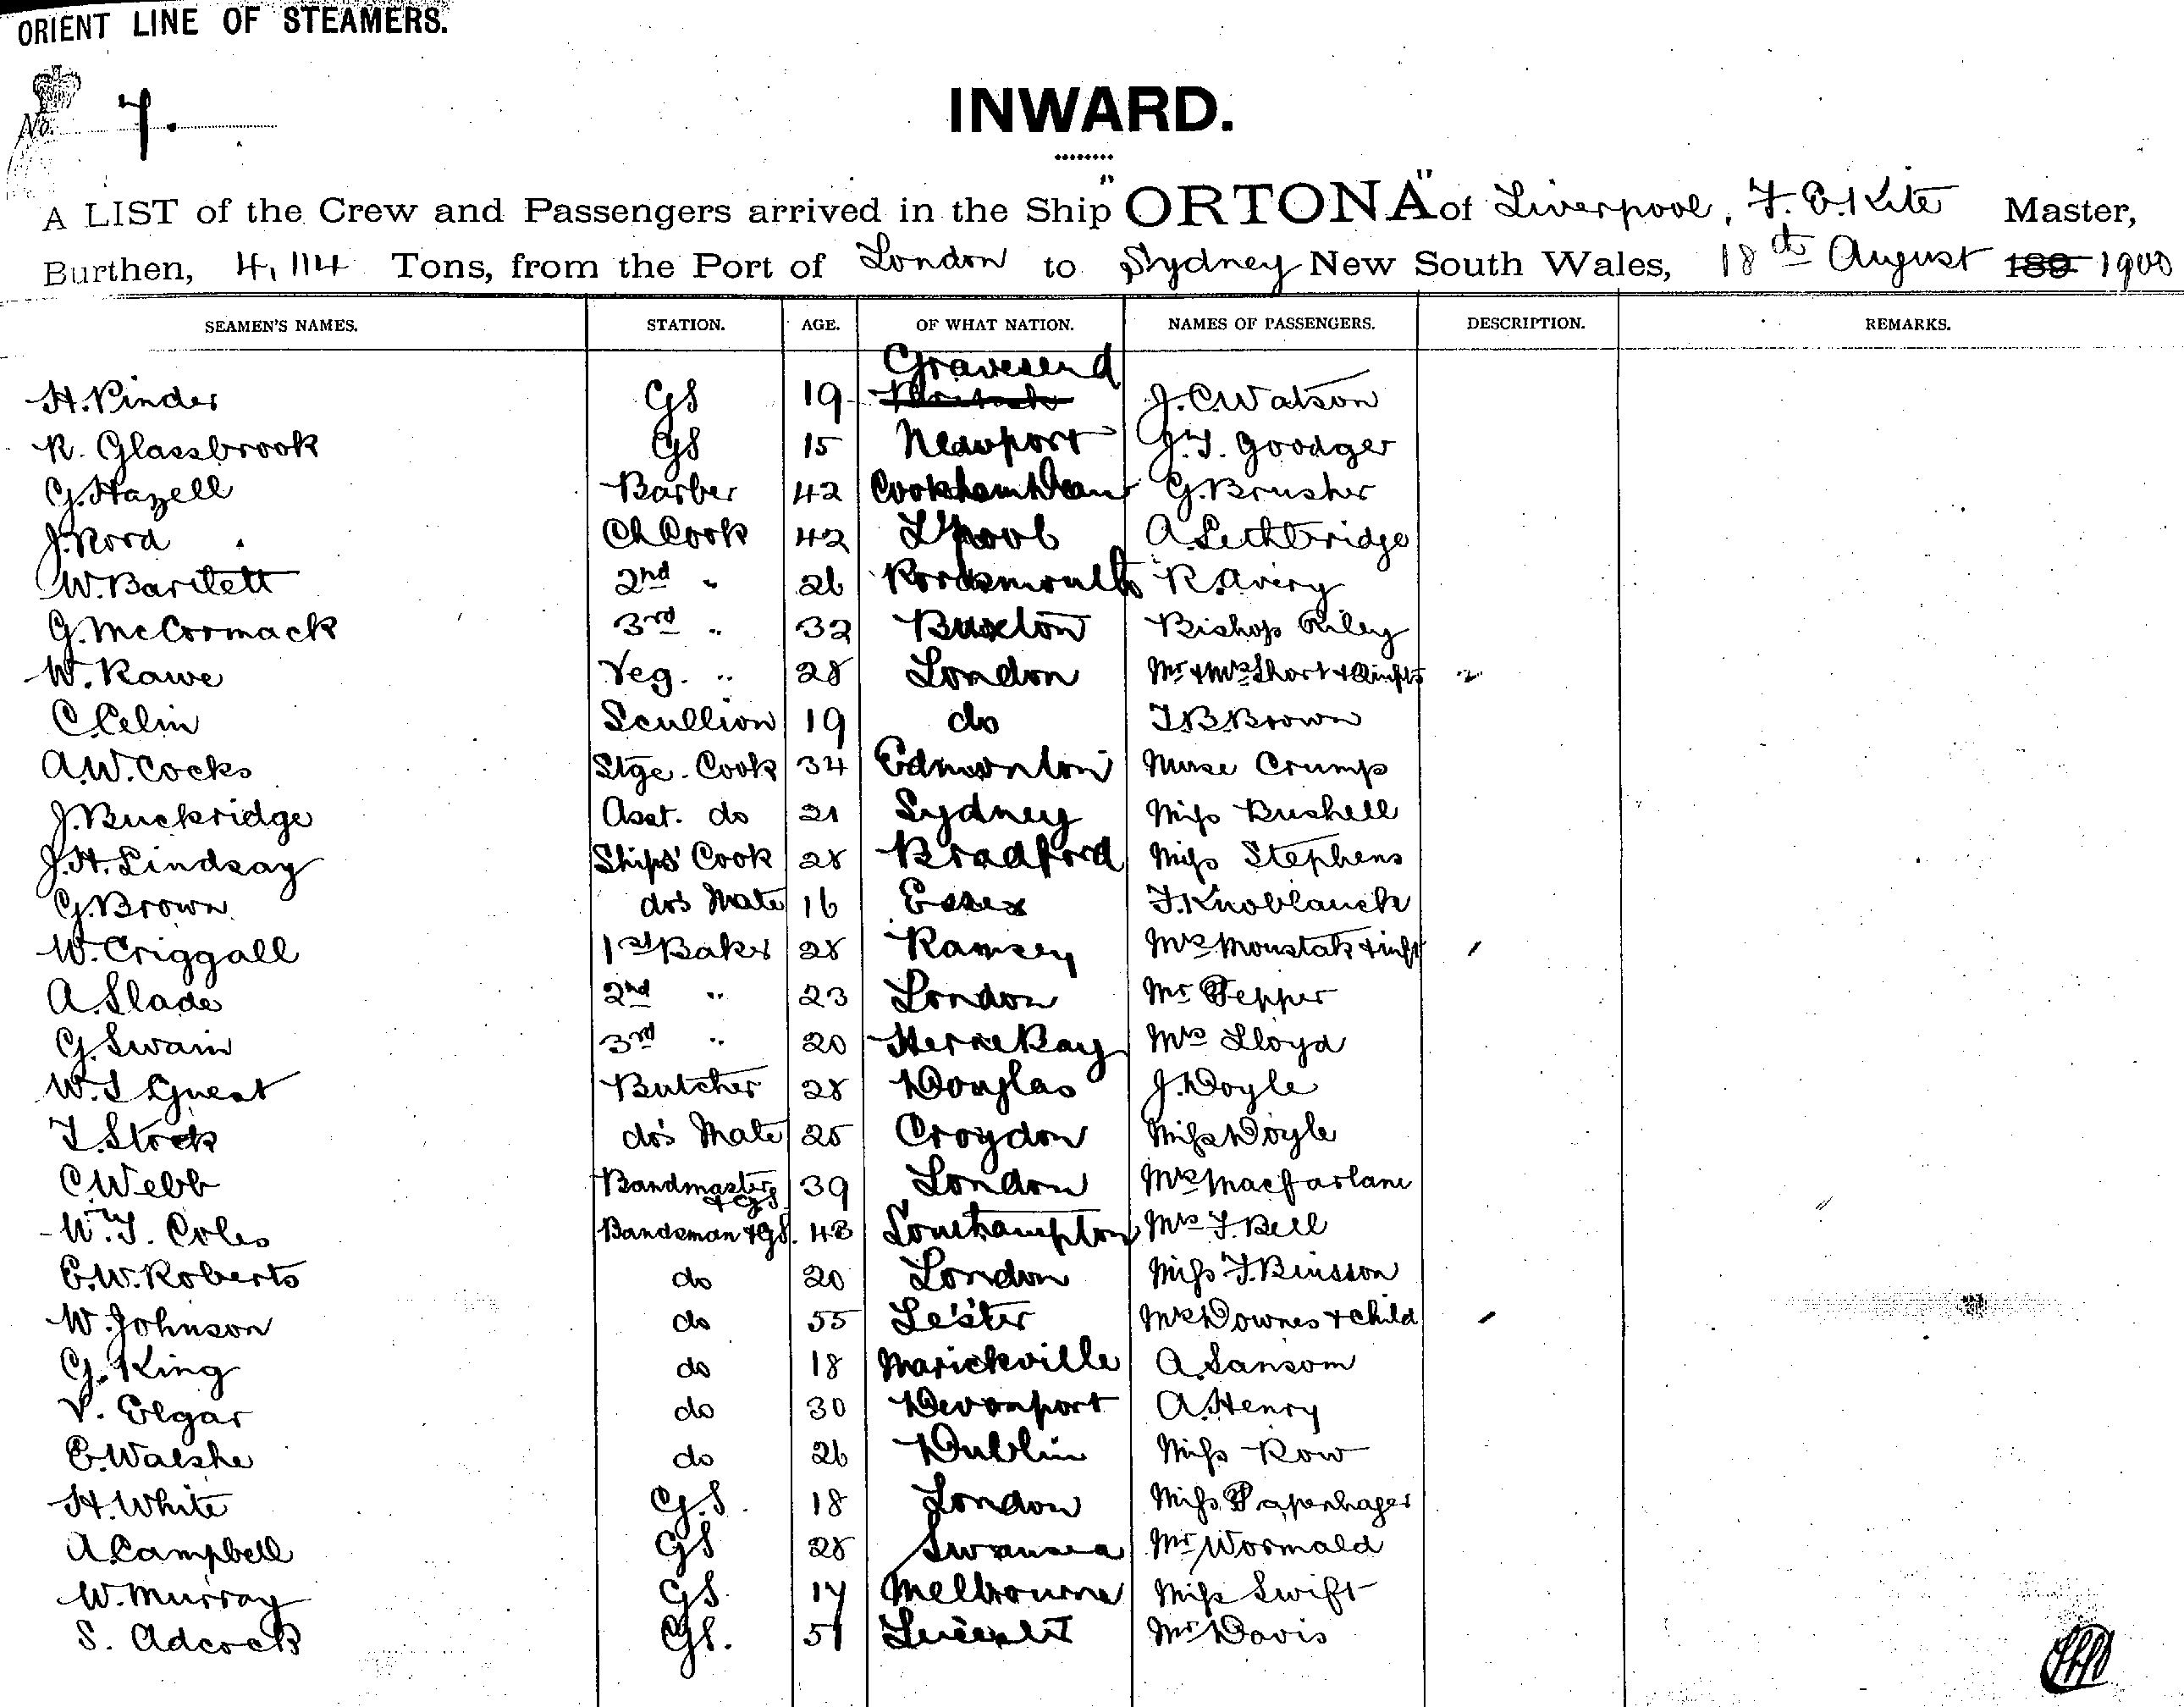 ORIENT LINE OF STEAMERS.
No. 7.
INWARD.
A LIST of the Crew and Passengers arrived in the Ship "ORTONA" of Liverpool, F. E. Kite Master,
Burthen, 4,114 Tons, from the Port of London to Sydney New South Wales, 18th August 189 1900
SEAMEN'S NAMES. STATION. AGE. OF WHAT NATION. NAMES OF PASSENGERS. DESCRIPTION. REMARKS.
Gravesend
H. Pinder GS 19 British J. C. Watson
R. Glassbrook GS 15 Newport J. T. Goodger
G. Hazell Barber 42 Cookham Dean G. Brusher
J. Rord Ch Cook 42 L'pool A. Lethbridge
W. Bartlett 2nd " 26 Portsmouth R. Avery
G. McCormack 3rd " 32 Buxton Bishop Riley
W. Rawe Veg. " 28 London Mr & Mrs Short & 2 infts 2
C. Celin Scullion 19 do T B Brown
A. W. Cocks Stge. Cook 34 Edmonton Nurse Crump
J. Buckridge Asst. do 21 Sydney Miss Bushell
J. H. Lindsay Ships' Cook 28 Bradford Miss Stephens
G. Brown do's Mate 16 Essex F. Knoblauch
W. Criggall 1st Baker 28 Ramsey Mrs Moustak & inft 1
A. Slade 2nd " 23 London Mr Pepper
G. Swain 3rd " 20 Herne Bay Mrs Lloyd
W. S Guest Butcher 28 Douglas J. Doyle
T. Stock do's Mate 25 Croydon Miss Doyle
C. Webb Bandmaster & GS 39 London Mrs Macfarlane
W. T. Coles Bandsman & GS. 43 Southampton Mrs F. Bell
E. W. Roberts do 20 London Miss F. Binsson
W. Johnson do 55 Le'ster Mrs Downes & child 1
G. King do 18 Marickville A. Sansom
V. Elgar do 30 Devonport A. Henry
E. Walshe do 26 Dublin Miss Row
H. White G.S. 18 London Miss Papenhager
A. Campbell GS 28 Swansea Mr Wormald
W. Murray GS. 17 Melbourne Miss Swift
S. Adcock GS. 51 Mr Davis